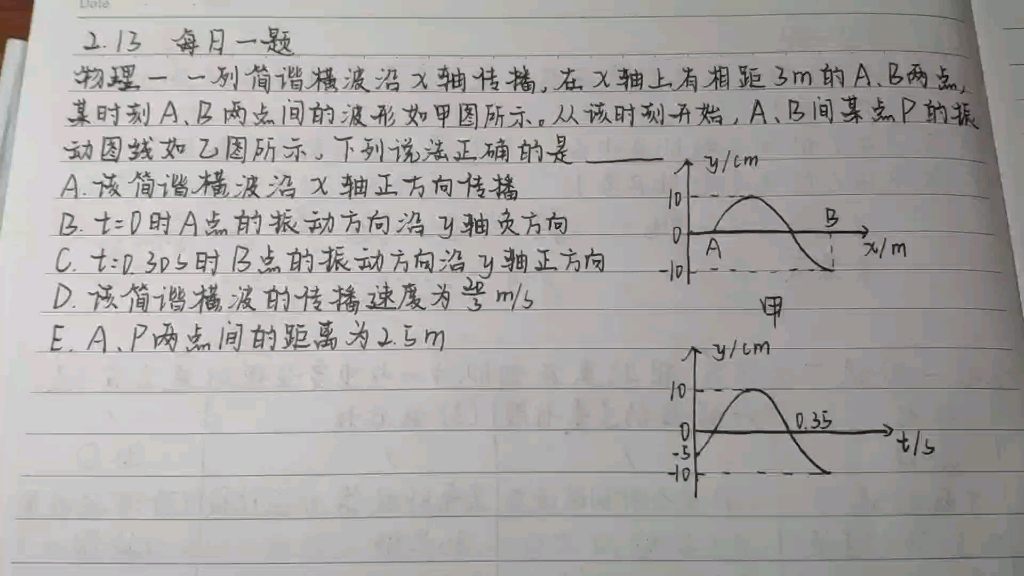 Date
2.13 每日一题
物理一 一列简谐横波沿x轴传播,在x轴上有相距3m的A、B两点,
某时刻A、B两点间的波形如甲图所示。从该时刻开始,A、B间某点P的振
动图线如乙图所示。下列说法正确的是 ____
A. 该简谐横波沿x轴正方向传播
B. t=0时A点的振动方向沿y轴负方向
C. t=0.30s时B点的振动方向沿y轴正方向
D. 该简谐横波的传播速度为20/3 m/s
E. A、P两点间的距离为2.5m
y/cm
10
0
-10
A
B
x/m
甲
y/cm
10
0
-5
-10
0.35
t/s